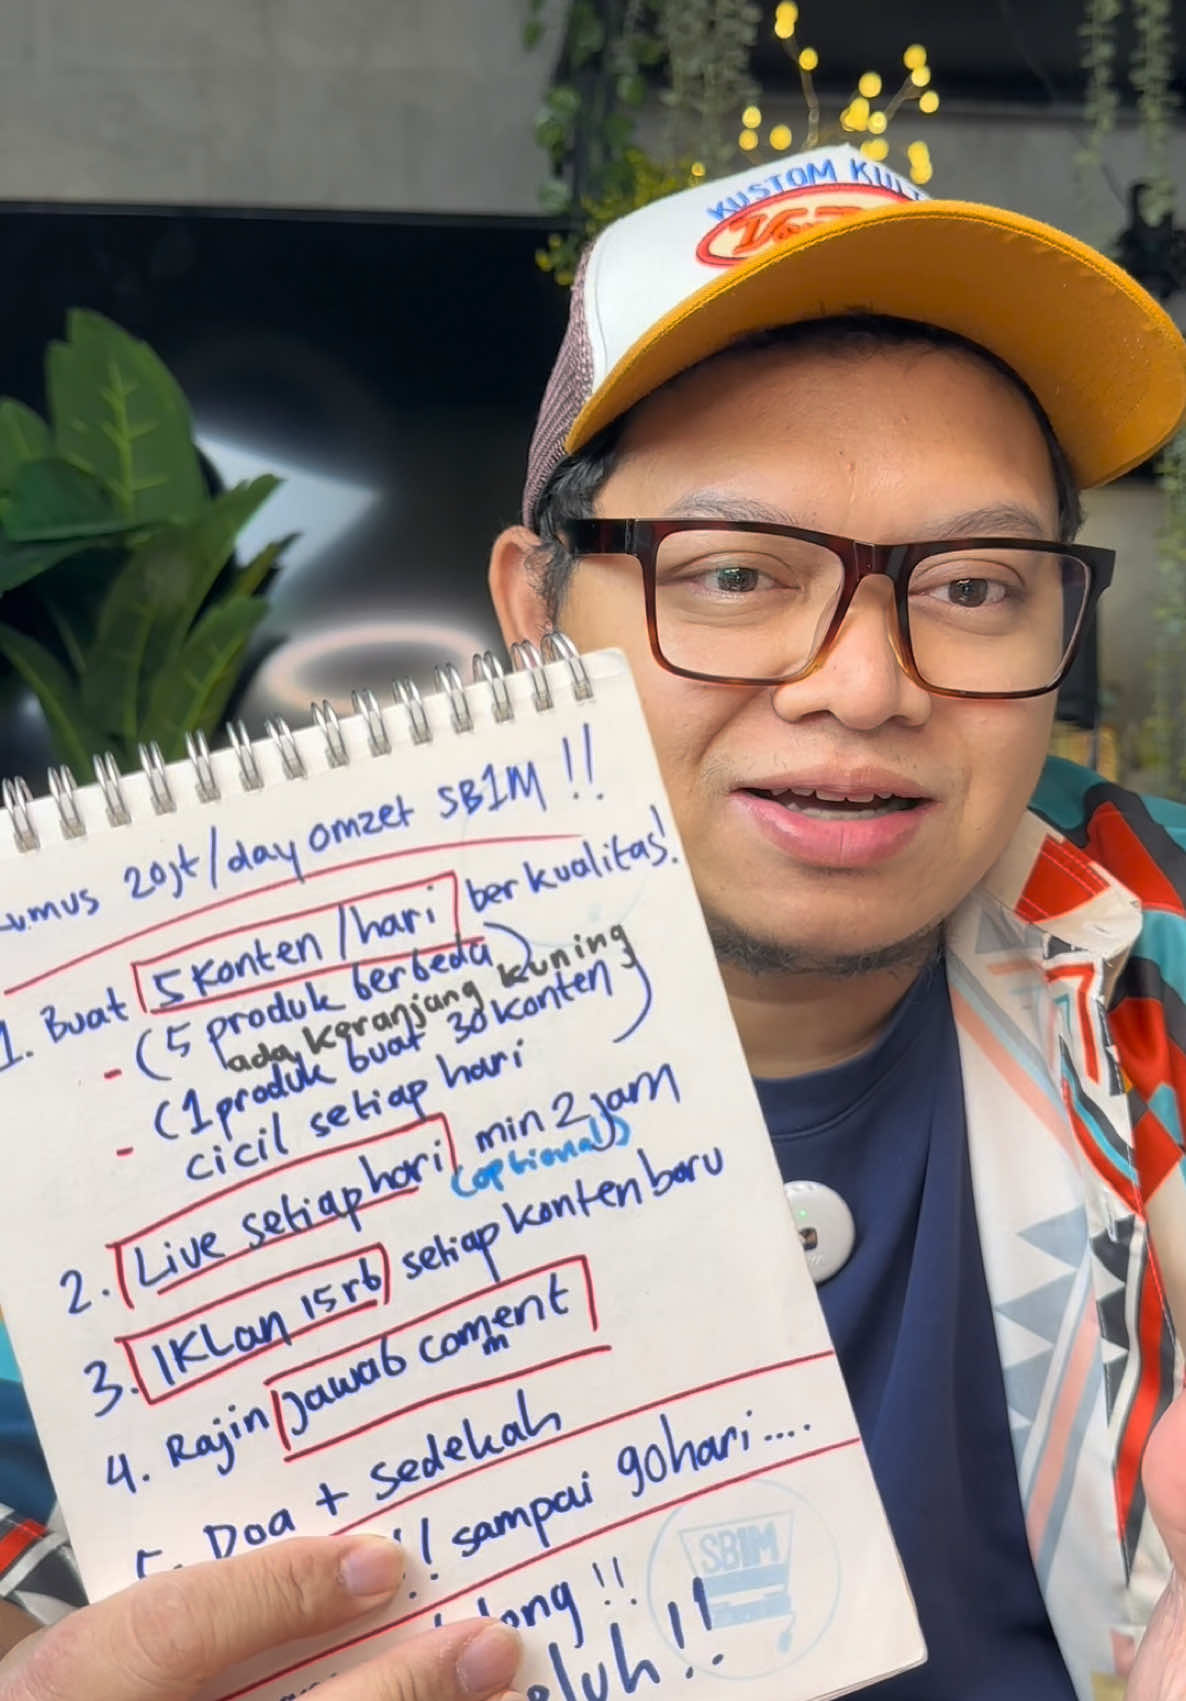 KUSTOM KULT
umus 20jt/day omzet SB1M !!
1. Buat 5 Konten/hari berkualitas!
- (5 produk berbeda)
ada keranjang kuning
- (1 produk buat 30 konten)
cicil setiap hari
2. Live setiap hari min 2 jam
(optional)
3. IKLan 15rb setiap konten baru
4. Rajin jawab comment
5. Doa + sedekah
!! sampai 90 hari....
ong !!
eluh !!
SB1M